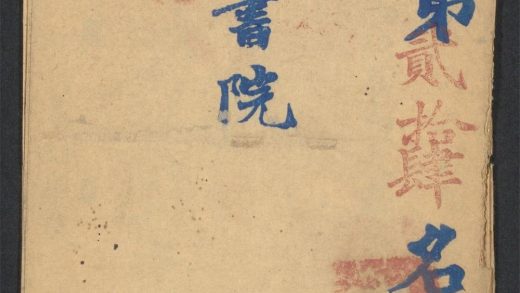 第貳拾肆名
書院